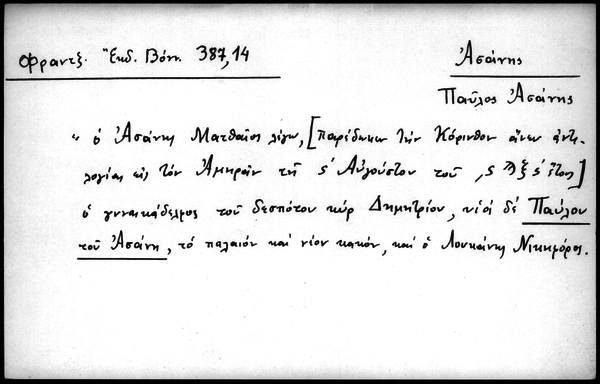 Φραντζ. Ἔκδ. Βόνν. 387,14
Ἀσάνης
Παῦλος Ἀσάνης
" ὁ Ἀσάνης Ματθαῖος λέγω, [παρέδωκαν τὴν Κόρινθον ἄνευ ἀντι-
λογίας εἰς τὸν Ἀμηρᾶν τῇ ς΄ Αὐγούστου τοῦ ͵ςϠξς΄ ἔτους]
ὁ γυναικάδελφος τοῦ δεσπότου κὺρ Δημητρίου, υἱὸς δὲ Παύλου
τοῦ Ἀσάνη, τὸ παλαιὸν καὶ νέον κακόν, καὶ ὁ Λουκάνης Νικηφόρος.